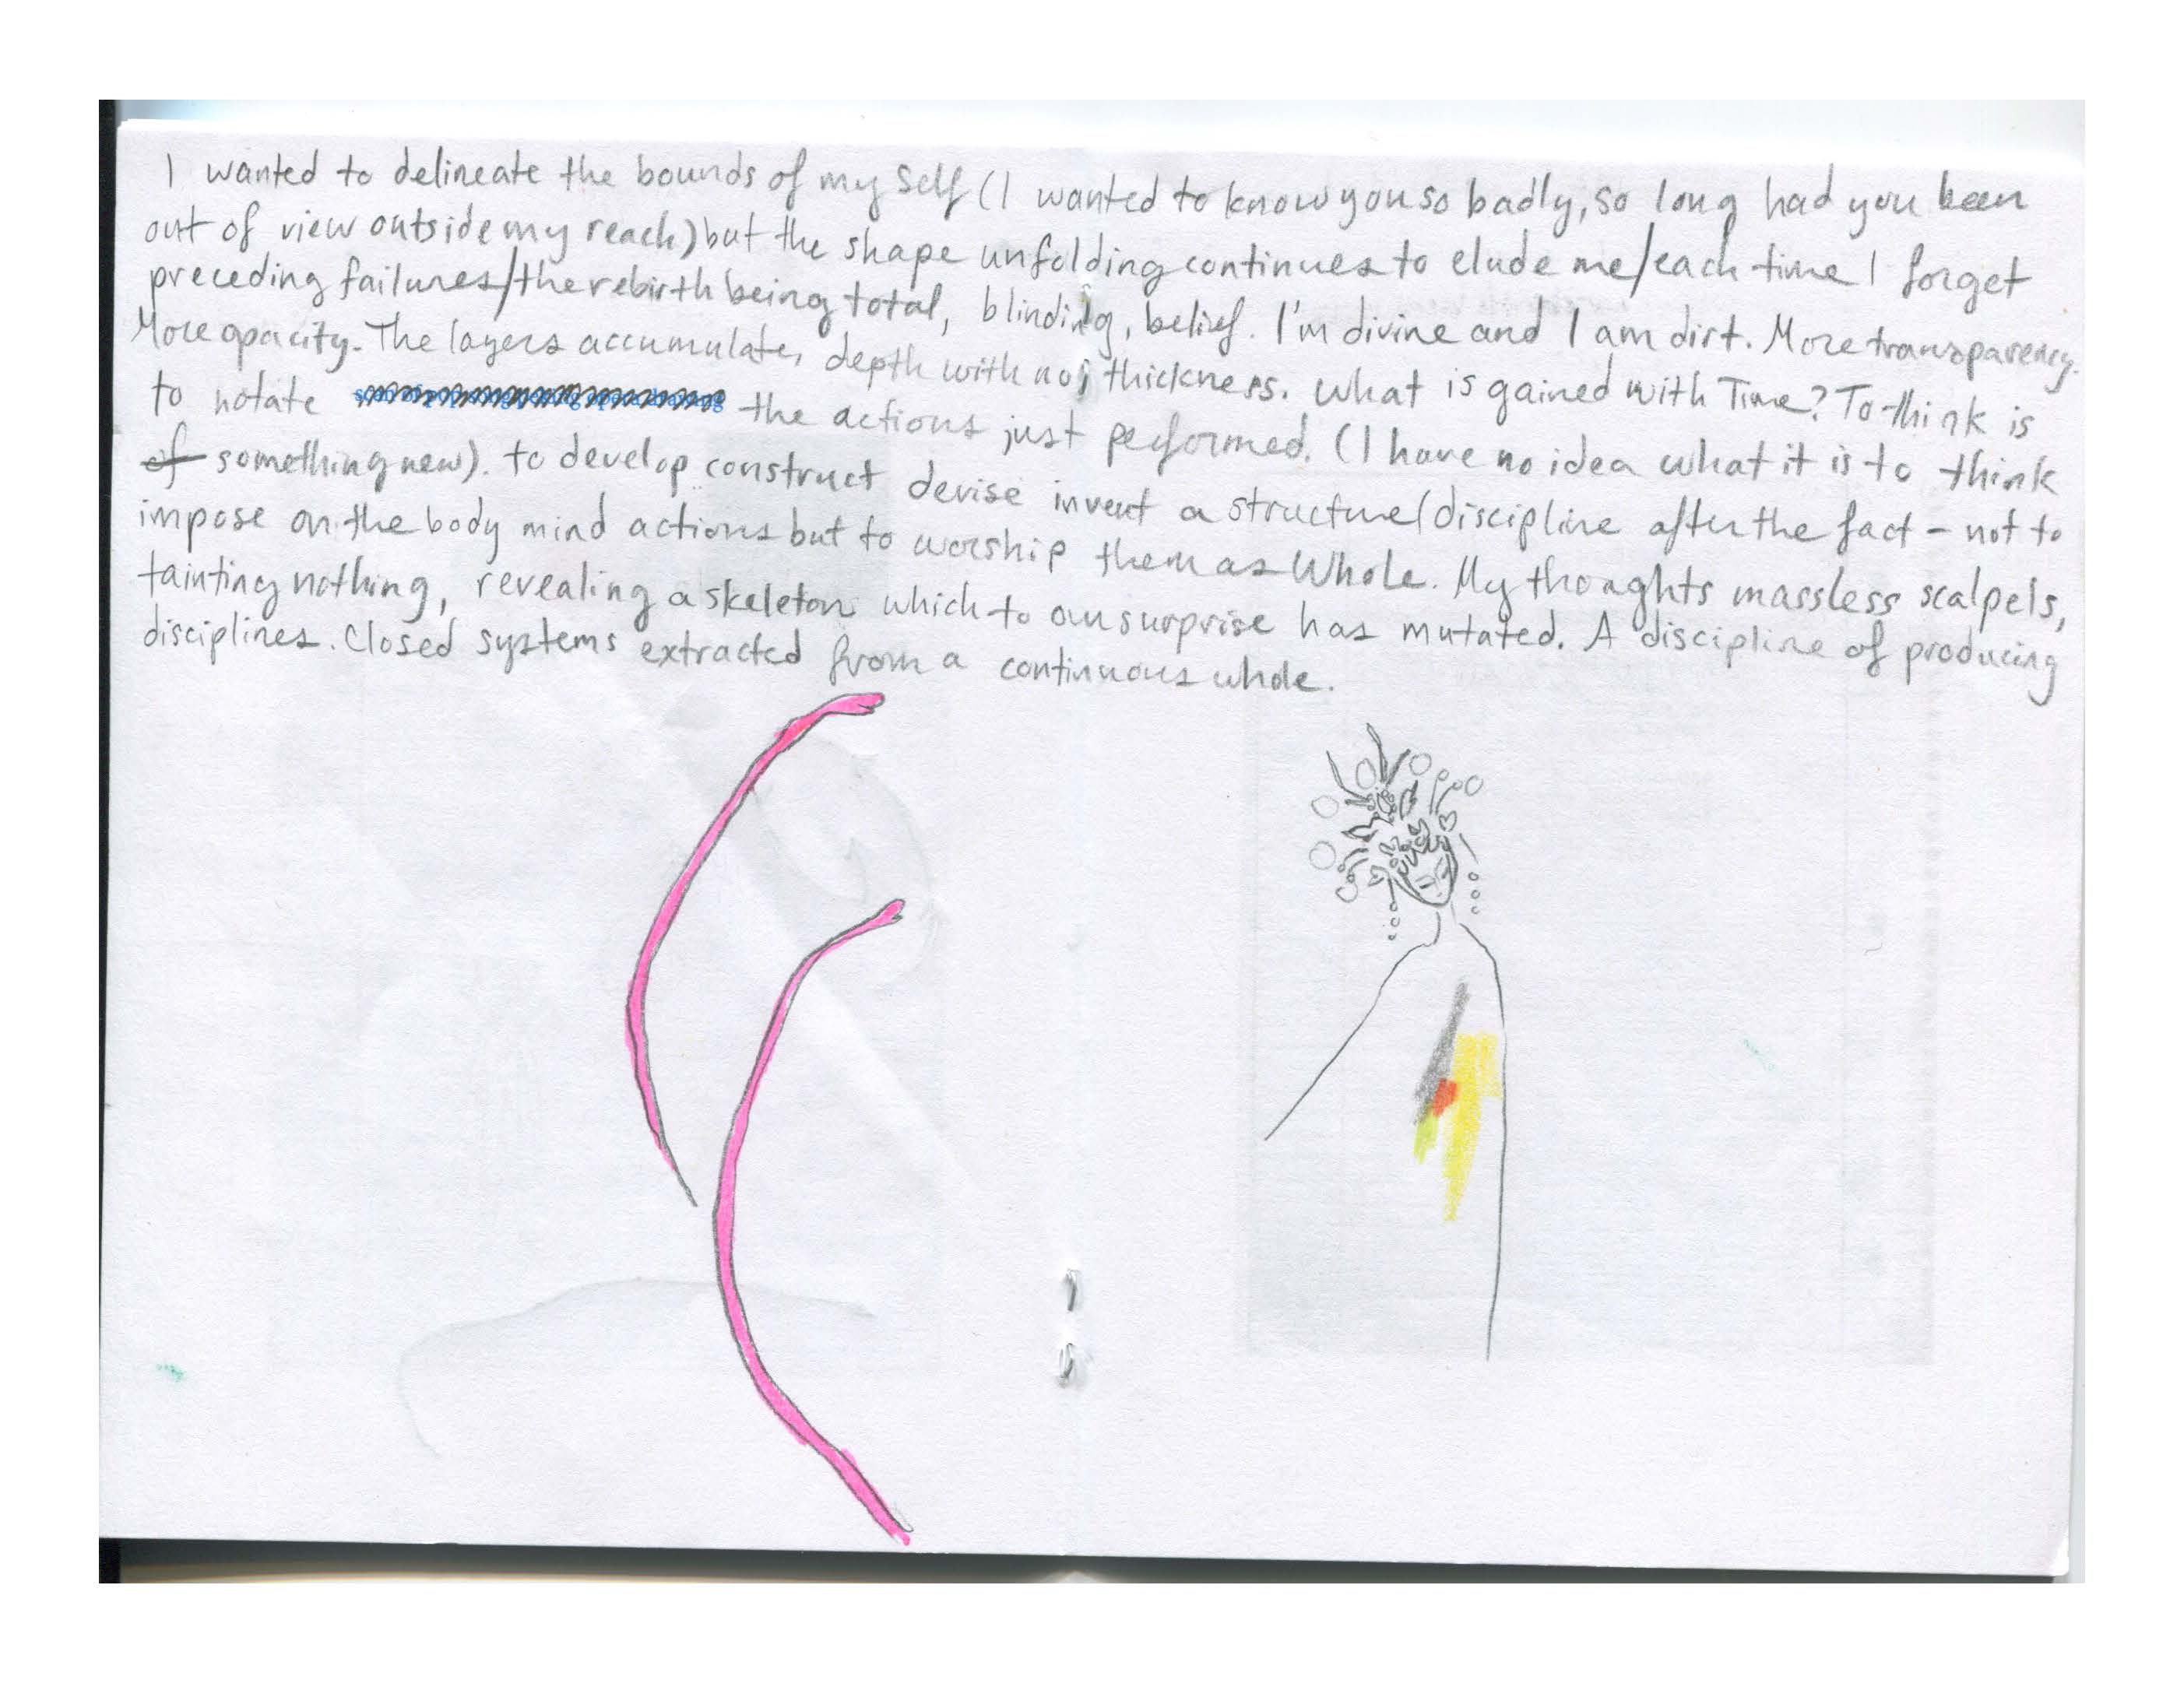 I wanted to delineate the bounds of my Self (I wanted to know you so badly, so long had you been
out of view outside my reach) but the shape unfolding continues to elude me/each time I forget
preceding failures/the rebirth being total, blinding, belief. I'm divine and I am dirt. More transparency.
More opacity. The layers accumulate, depth with no thickness. What is gained with Time? To think is
to notate the actions just performed. (I have no idea what it is to think
of something new). to develop construct devise invent a structure/discipline after the fact – not to
impose on the body mind actions but to worship them as Whole. My thoughts massless scalpels,
tainting nothing, revealing a skeleton which to our surprise has mutated. A discipline of producing
disciplines. Closed systems extracted from a continuous whole.